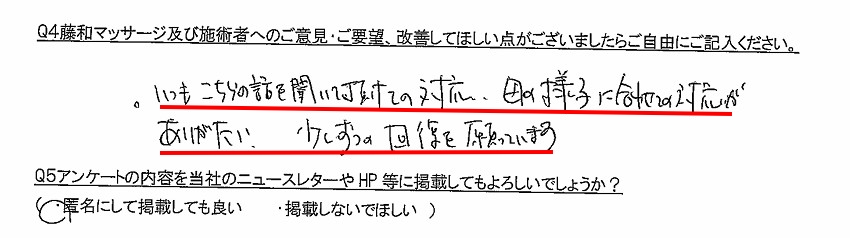 Q4藤和マッサージ及び施術者へのご意見・ご要望、改善してほしい点がございましたらご自由にご記入ください。
。いつもこちらの話を聞いて頂けての対応、母の様子に合わせての対応が
ありがたい。 少しずつの回復を願っています
Q5アンケートの内容を当社のニュースレターやHP等に掲載してもよろしいでしょうか？
（・匿名にして掲載しても良い ・掲載しないでほしい ）